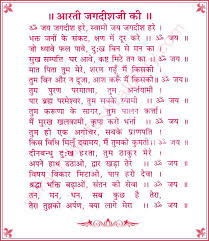 ॥ आरती जगदीशजी की ॥
ॐ जय जगदीश हरे, स्वामी जय जगदीश हरे
भक्त जनों के संकट, क्षण में दूर करे ॥ ॐ जय ॥
जो ध्यावे फल पावे, दुःख विनसे मन का
सुख सम्पत्ति घर आवे, कष्ट मिटे तन का ॥ ॐ जय ॥
मात पिता तुम मेरे, शरण गहूँ मैं किसकी
तुम बिन और न दूजा, आश करूँ मैं किसकी ॥ ॐ जय ॥
तुम पूरण परमात्मा, तुम अर्न्तयामी
पार ब्रह्म परमेश्वर, तुम सबके स्वामी ॥ ॐ जय ॥
तुम करुणा के सागर, तुम पालन कर्त्ता
मैं मूरख खलकामी, कृपा करो भर्ता ॥ ॐ जय ॥
तुम हो एक अगोचर, सबके प्राणपति
किस विधि मिलूँ दयामय, मैं तुमको कुमती ॥ ॐ जय ॥
दीनबन्धु दुःख हरता, तुम ठाकुर मेरे
अपने हाथ उठाओ, द्वार खड़ा तेरे ॥ ॐ जय ॥
विषय विकार मिटाओ, पाप हरो देवा
श्रद्धा भक्ति बढ़ाओ, संतन की सेवा ॥ ॐ जय ॥
तन, मन, धन, सब कुछ है तेरा,
तेरा तुझको अर्पण, क्या लागे मेरा ॥ ॐ जय ॥